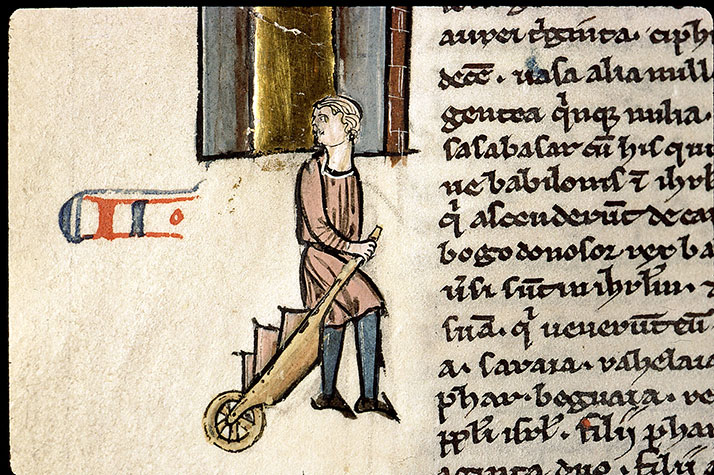 aurei tͥginta. ciph
decē. uasa alia mill
gentea qͥnqꝫ milia.
sasabasar cū his qui
ue babilonis ⁊ ihrl
qͥ ascenderūt de ca
bogodonosor rex ba
ūsi sūt in ihrl̄m.
suā. qͥ uenerūt cū
a. saraia. rahelaia
phar. beguaia. re
ppl̄i isrl̄. filii phar
aginta duo. filii